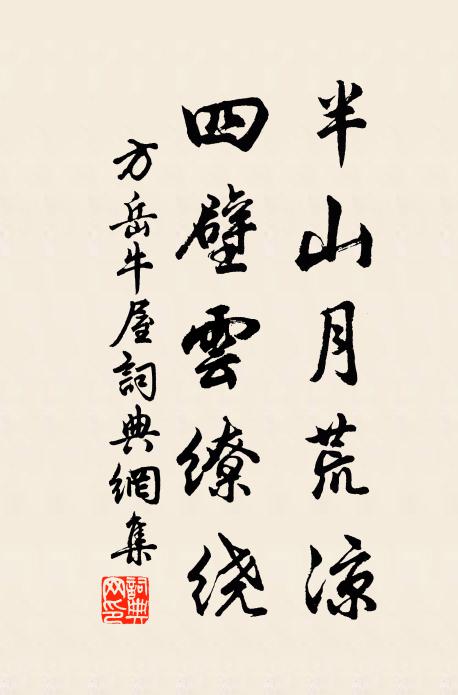 半山月荒涼
四壁雲繚绕
方岳牛屋詞典網集
詞典
网印